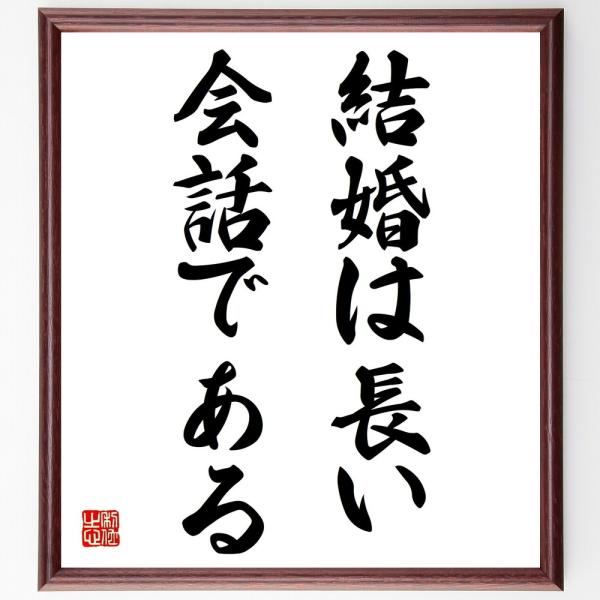 結婚は長い
会話である